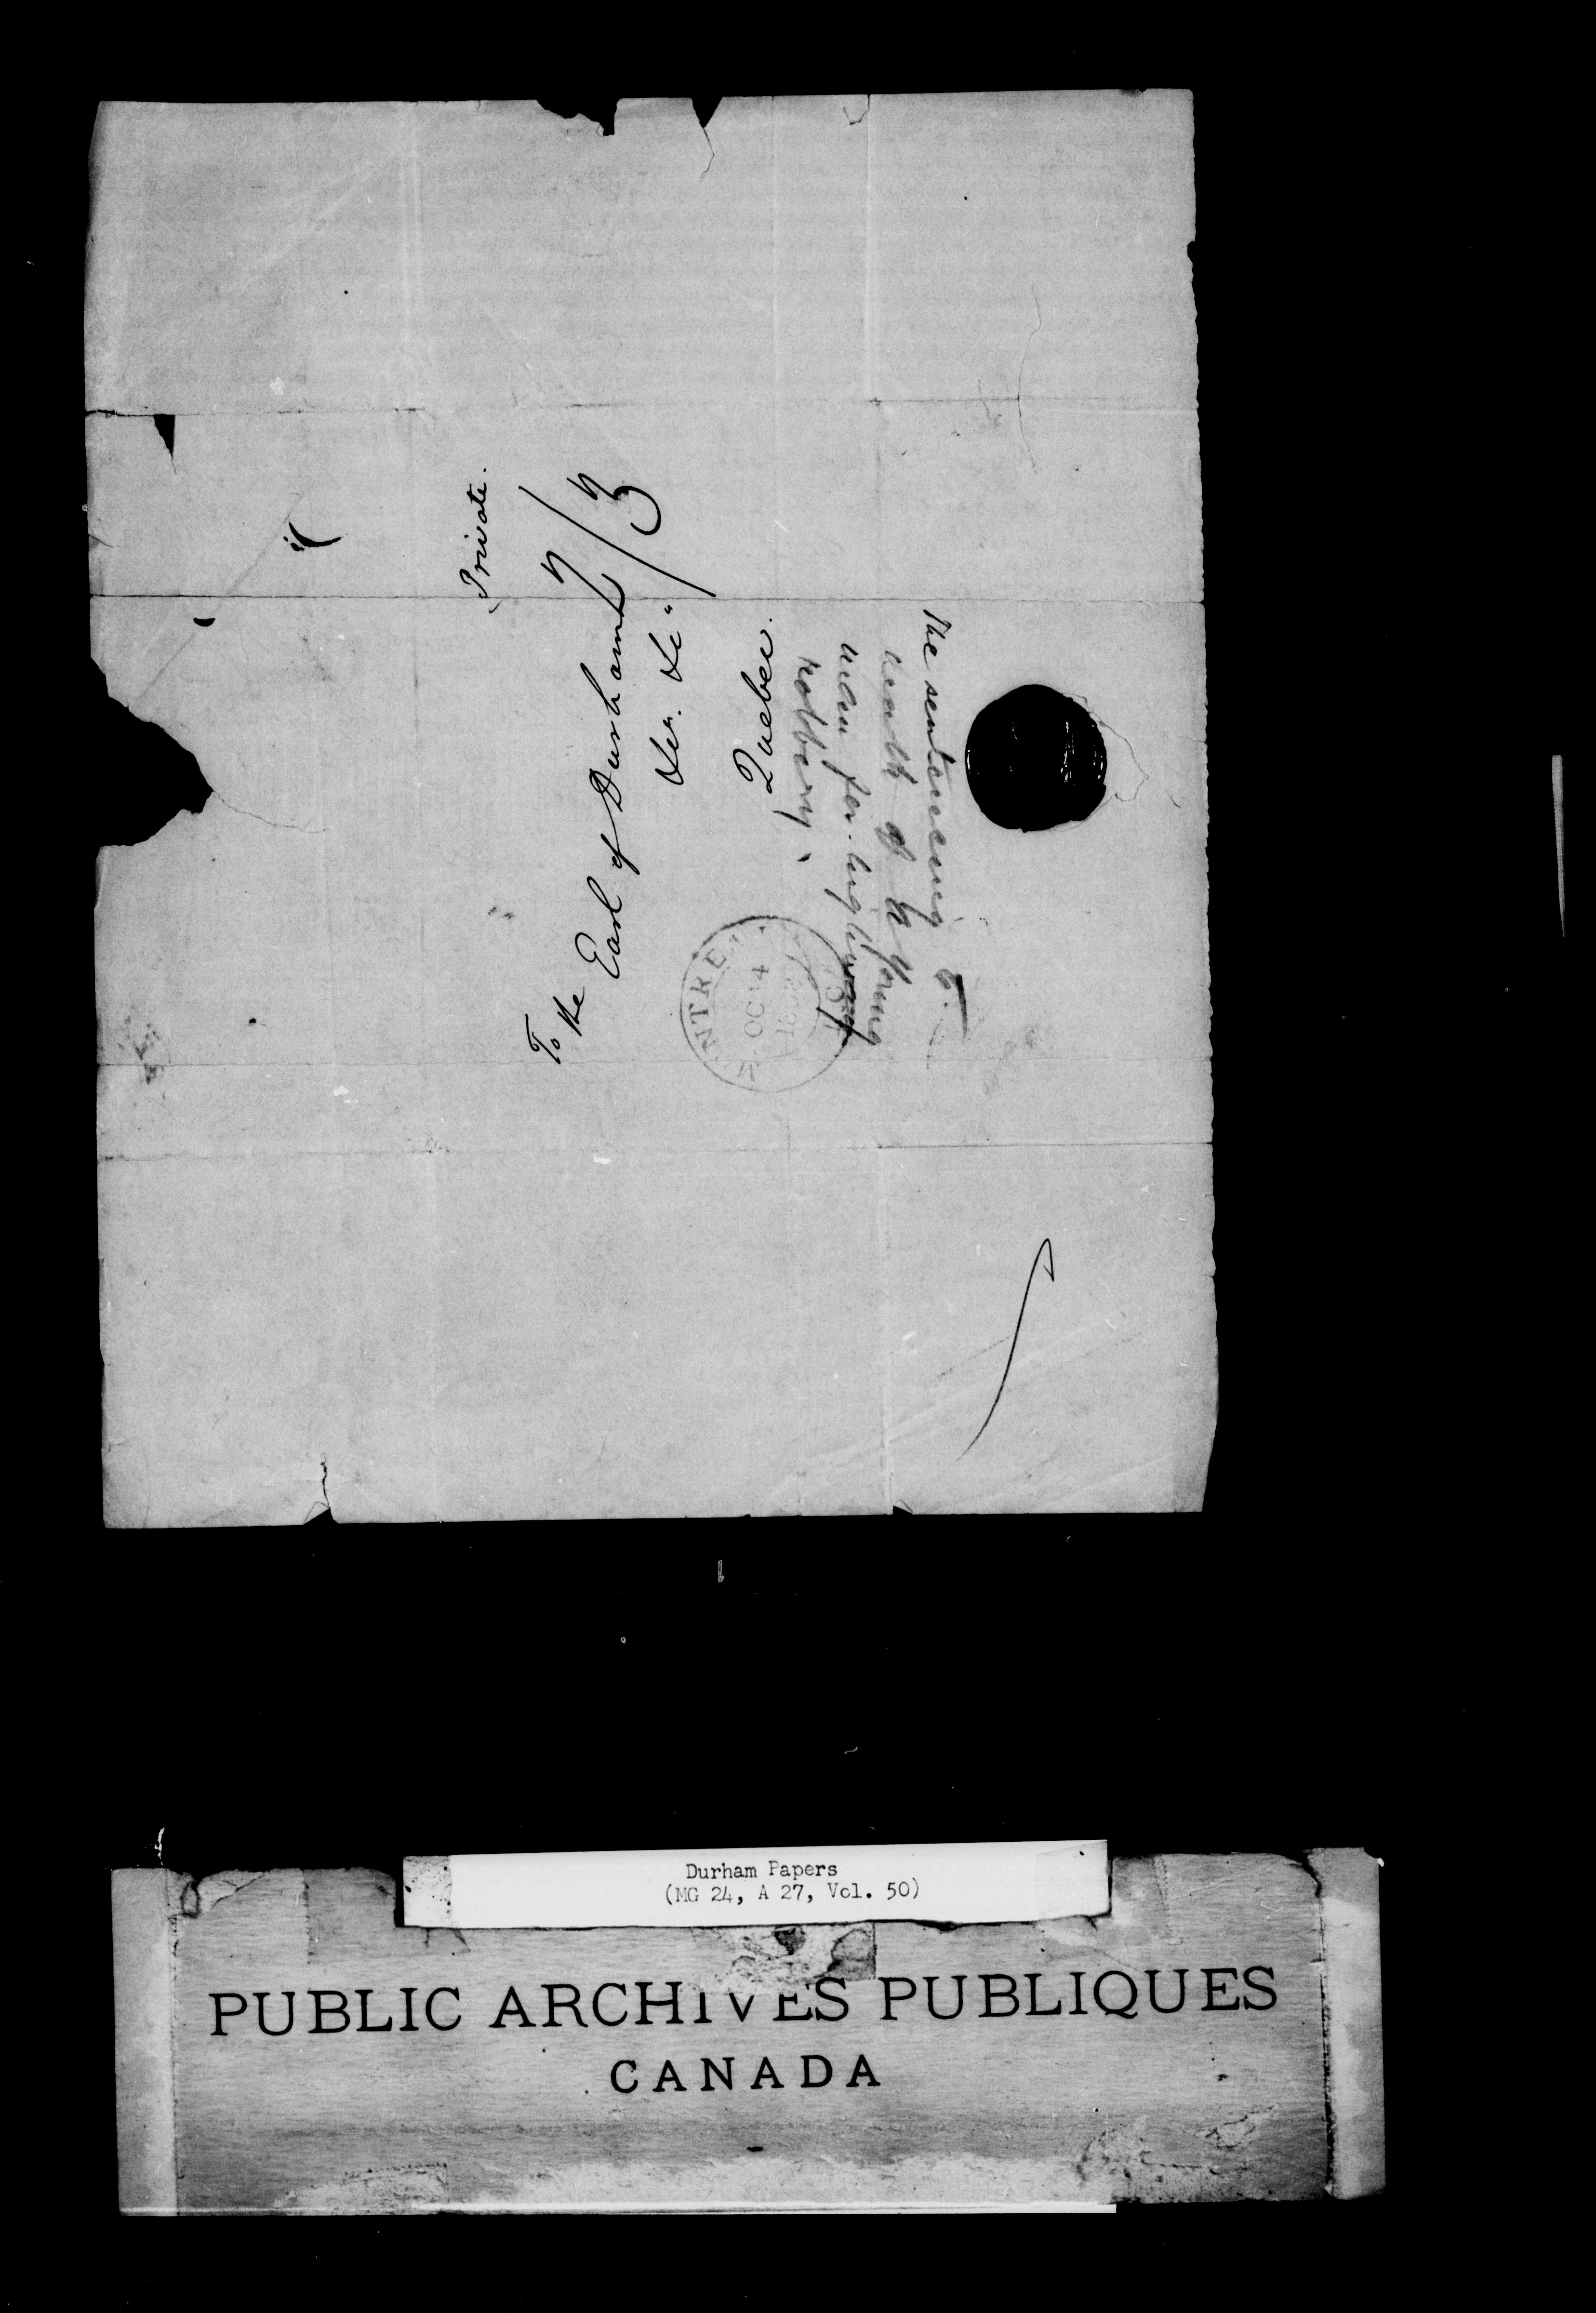 Private.
To the
Earl of Durham
&c. &c.
Quebec.
The sentencing to
death of a young
man for highway
robbery.
OC 4
Durham Papers
(MG 24, A 27, Vol. 50)
PUBLIC ARCHIVES PUBLIQUES
CANADA